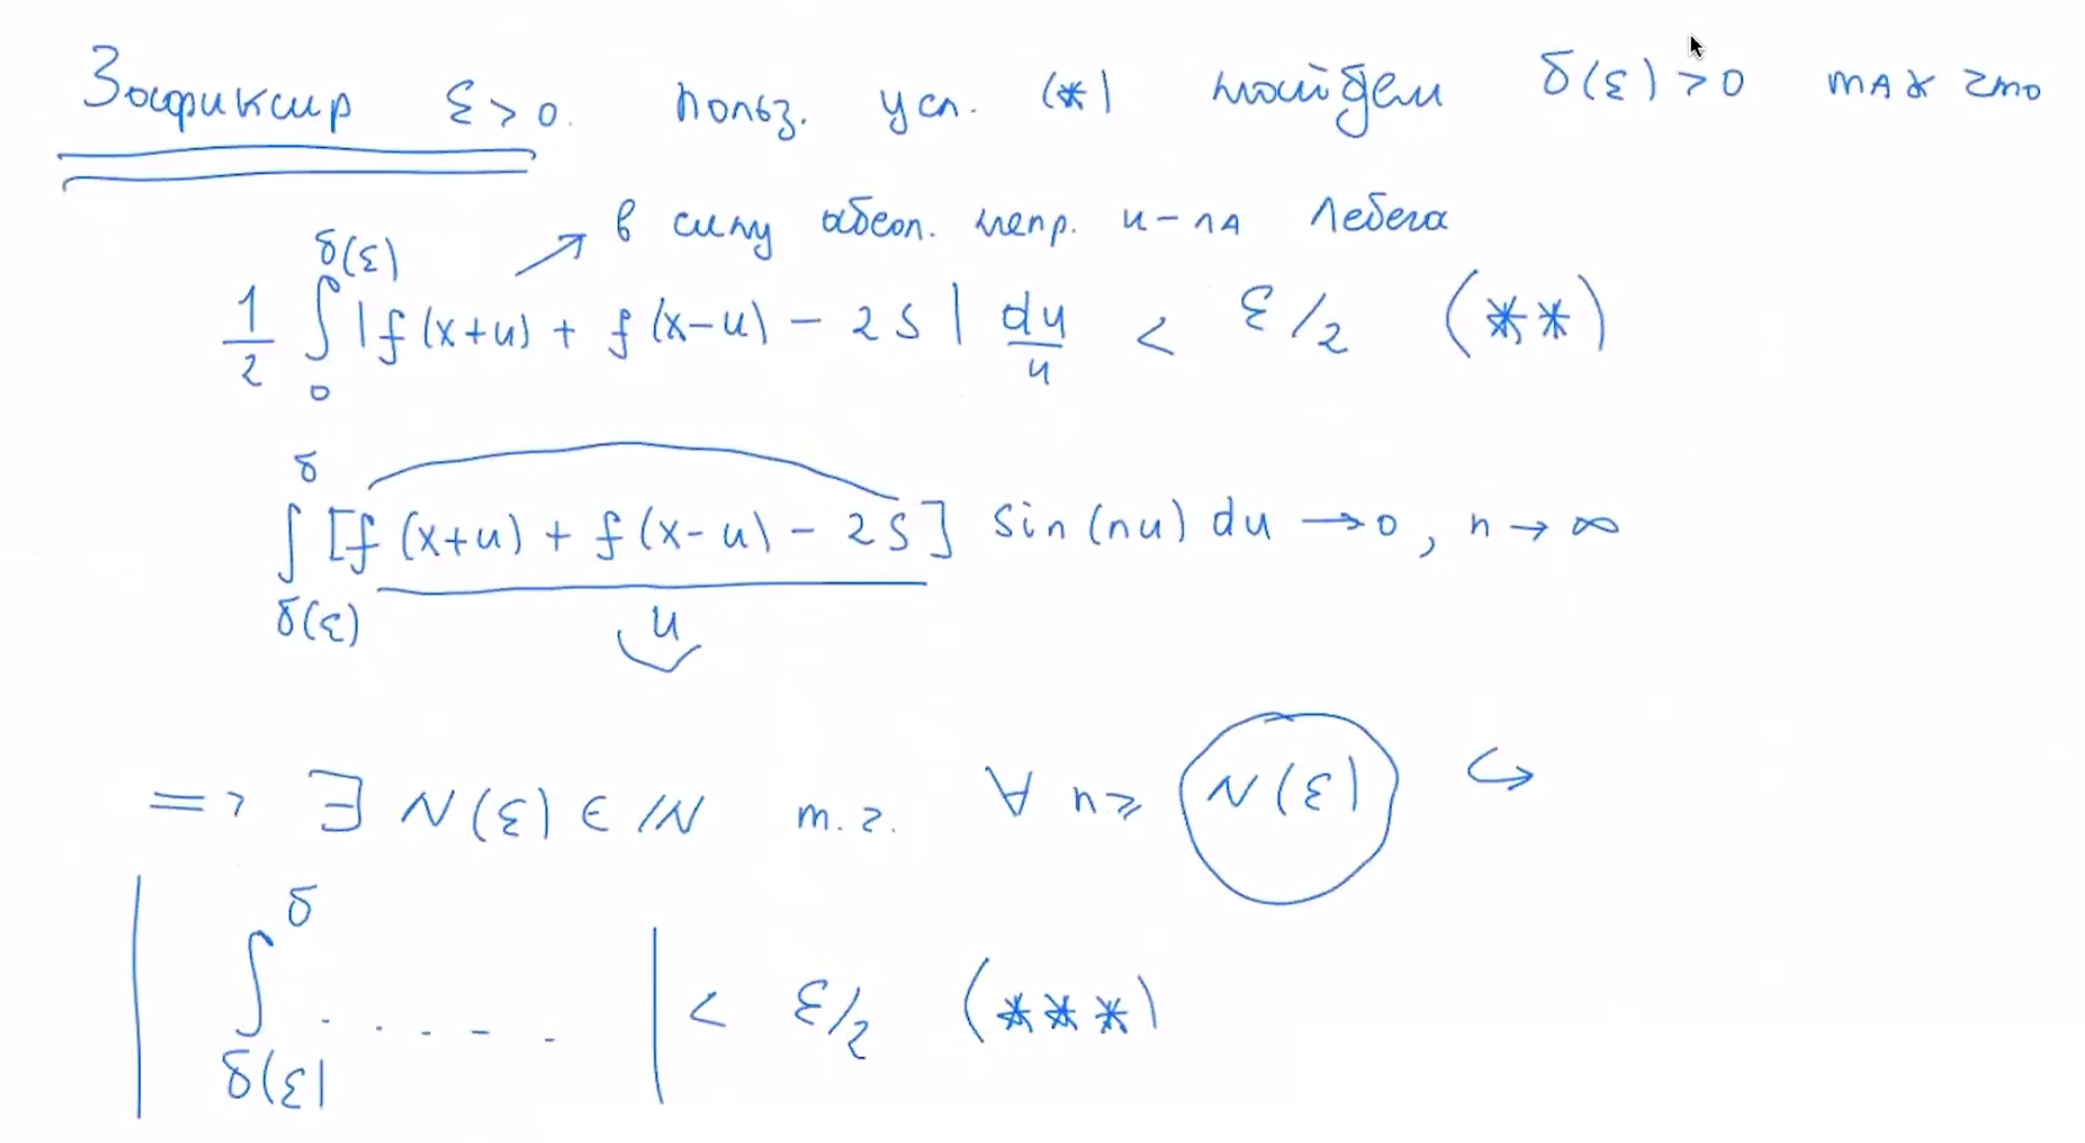 Зафиксир ε > 0. Польз. усл. (*) найдём δ(ε) > 0 так что
в силу абсол. непр. и-ла Лебега
1/2 ∫_0^{δ(ε)} |f(x+u) + f(x-u) - 2S| du/u < ε/2 (**)
∫_{δ(ε)}^{δ} [f(x+u) + f(x-u) - 2S]/u sin(nu) du → 0, n → ∞
=> ∃ N(ε) ∈ ℕ т.ч. ∀ n ≥ N(ε) ↪
| ∫_{δ(ε)}^{δ} ..... | < ε/2 (***)